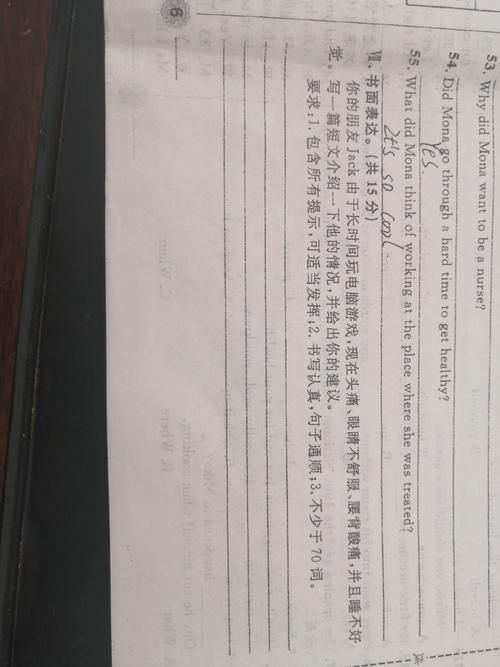 53. Why did Mona want to be a nurse?
54. Did Mona go through a hard time to get healthy?
Yes.
55. What did Mona think of working at the place where she was treated?
It's so cool.
Ⅶ. 书面表达。(共 15 分)
你的朋友 Jack 由于长时间玩电脑游戏,现在头痛、眼睛不舒服、腰背酸痛,并且睡不好
觉。写一篇短文介绍一下他的情况,并给出你的建议。
要求:1. 包含所有提示,可适当发挥;2. 书写认真,句子通顺;3. 不少于 70 词。
6